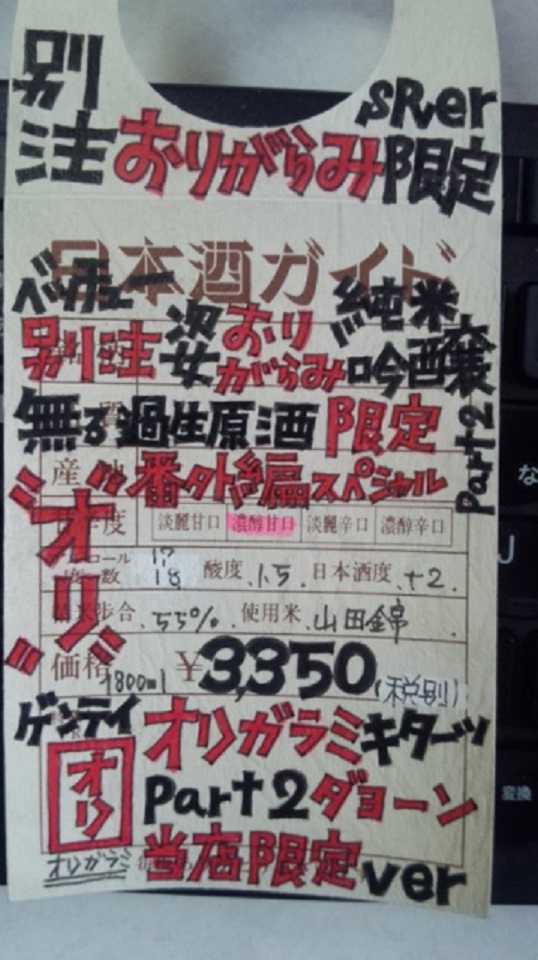 別注 おりがらみ 限定
SRer
日本酒ガイド
ベッチュー
別注 おりがらみ 純米吟醸
Part2
無ろ過生原酒 限定
産
番外編スペシャル
"オリ"
度 淡麗甘口 濃醇甘口 淡麗辛口 濃醇辛口
度数 17 18 酸度 1.5 日本酒度 +2
歩合 55% 使用米 山田錦
価格 1800ml ¥3,350(税別)
ゲンテイ オリガラミキターッ
オリ Part2ダヨーン
オリガラミ 当店限定 ver
な
J
変換